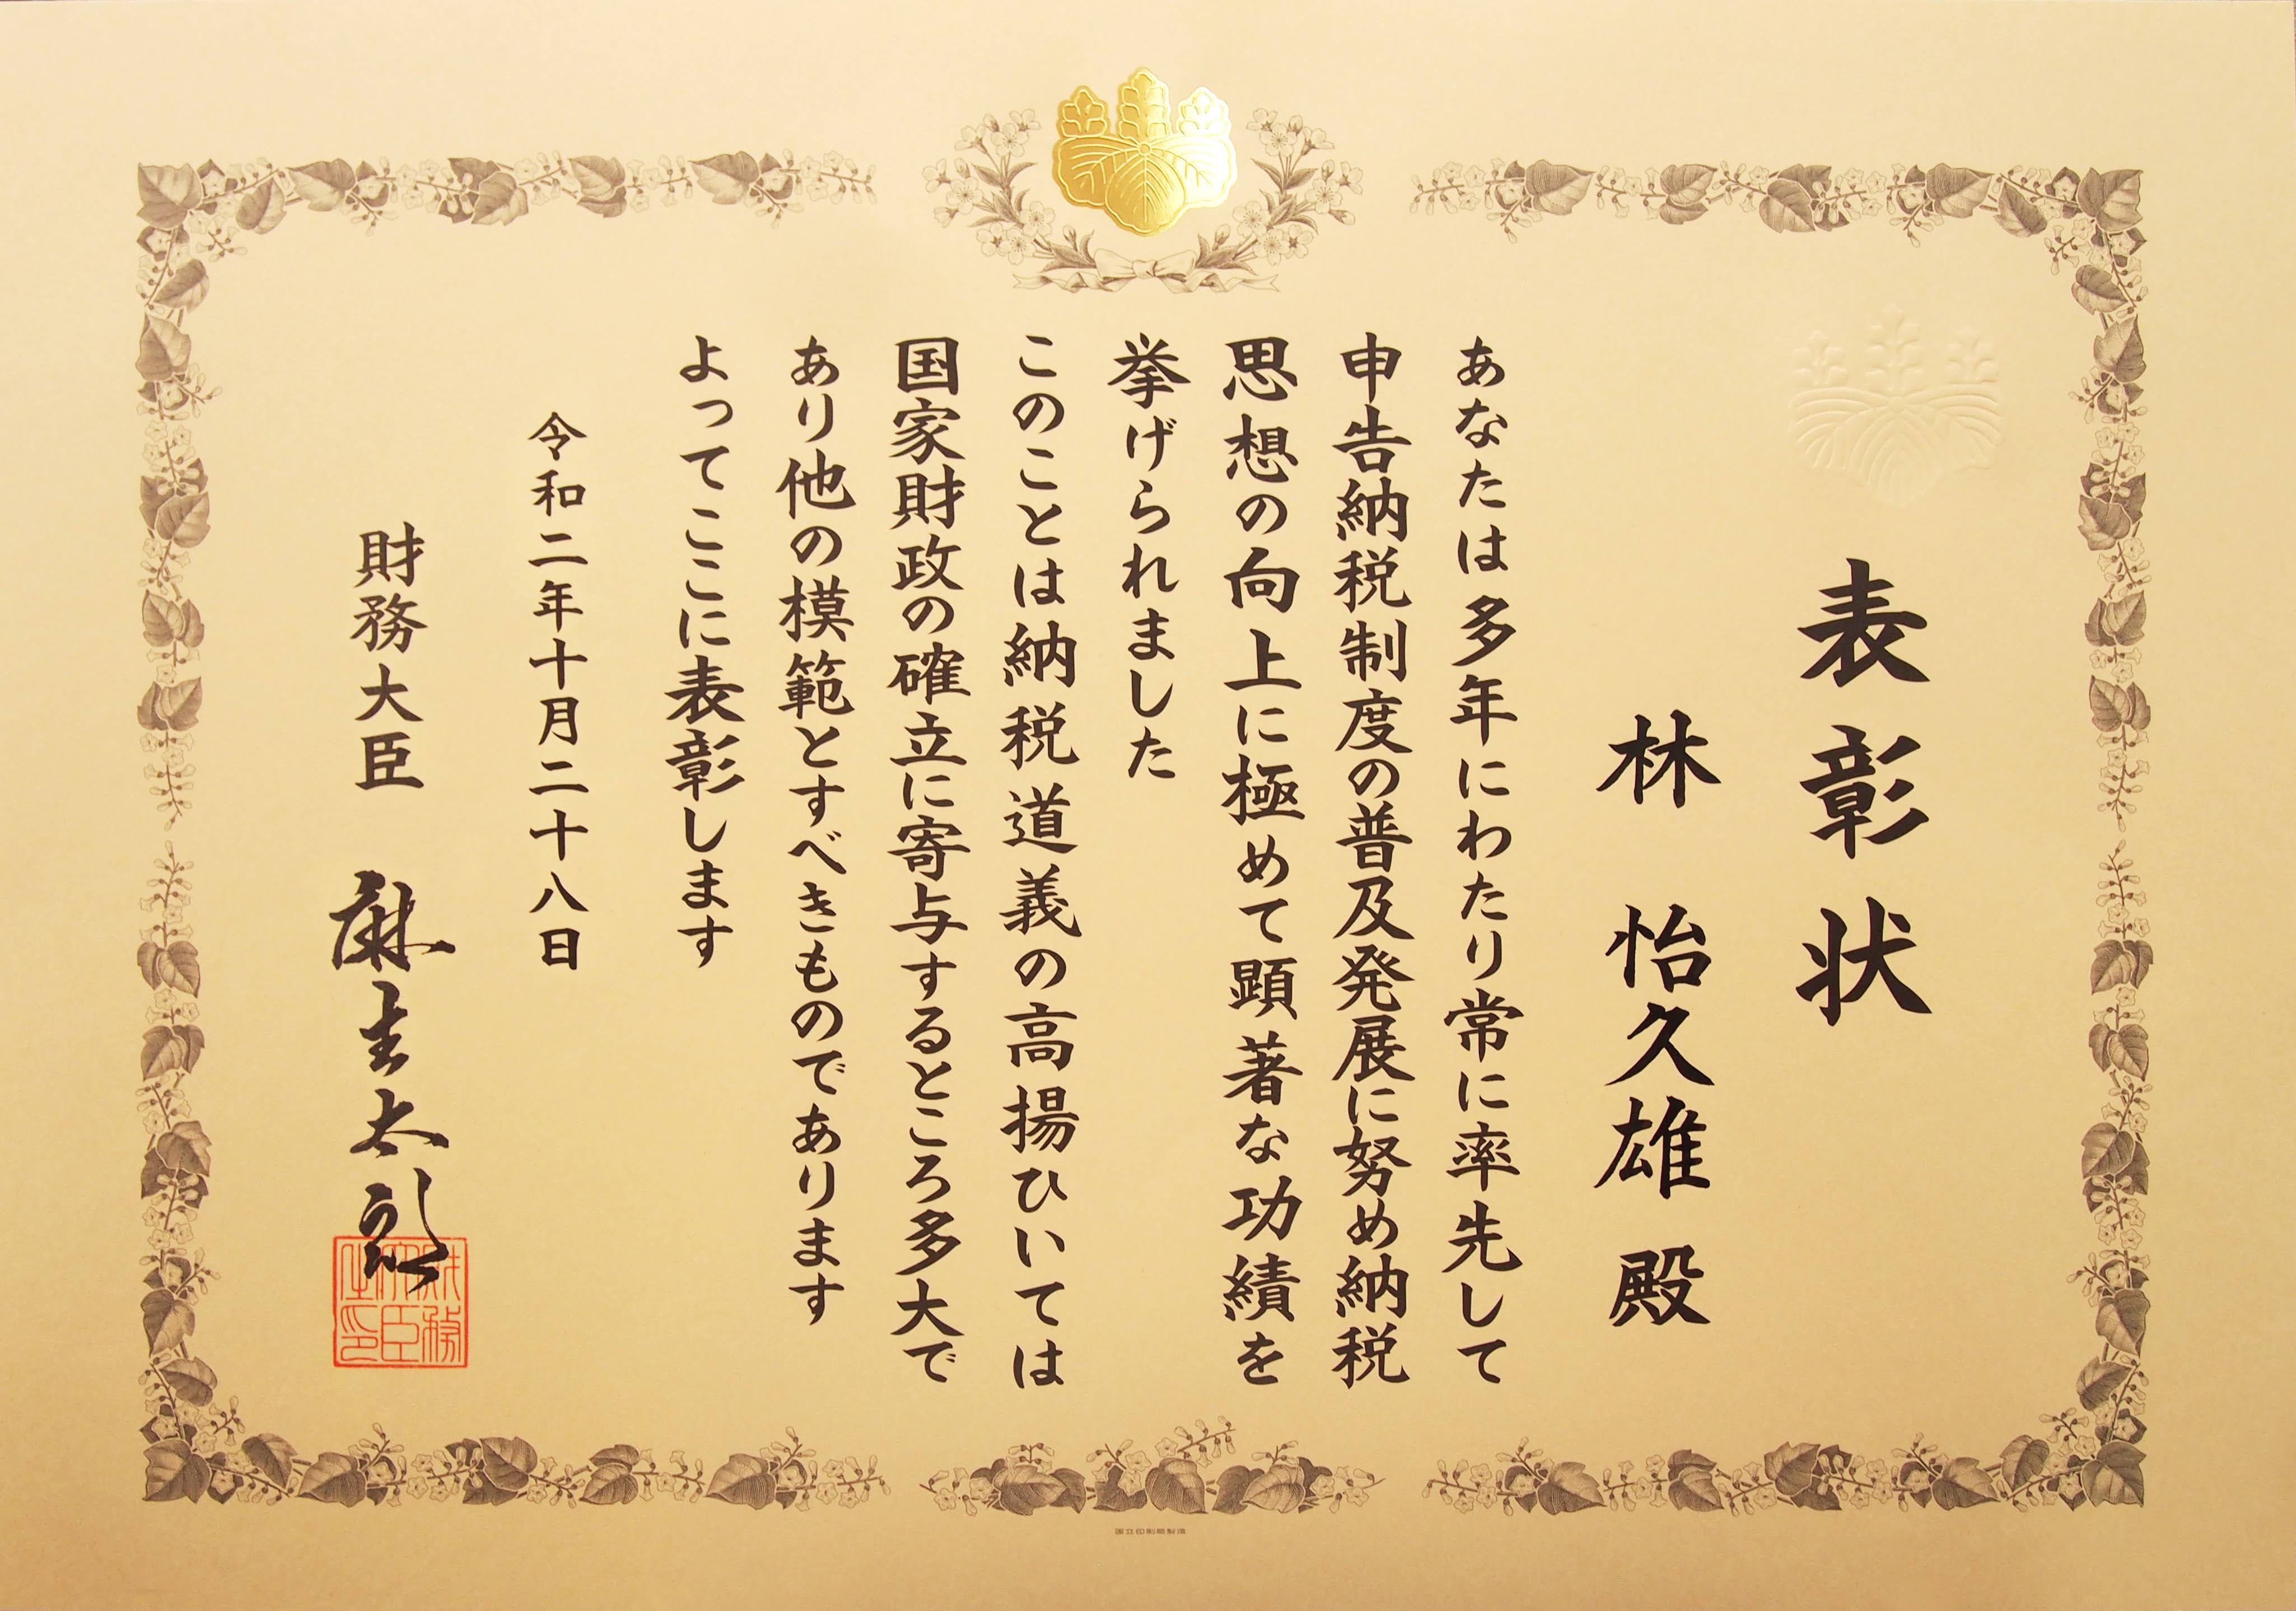 表彰状
林 怡久雄 殿
あなたは多年にわたり常に率先して
申告納税制度の普及発展に努め納税
思想の向上に極めて顕著な功績を
挙げられました
このことは納税道義の高揚ひいては
国家財政の確立に寄与するところ多大で
あり他の模範とすべきものであります
よってここに表彰します
令和二年十月二十八日
財務大臣 麻生太郎
財務大臣之印
国立印刷局製造